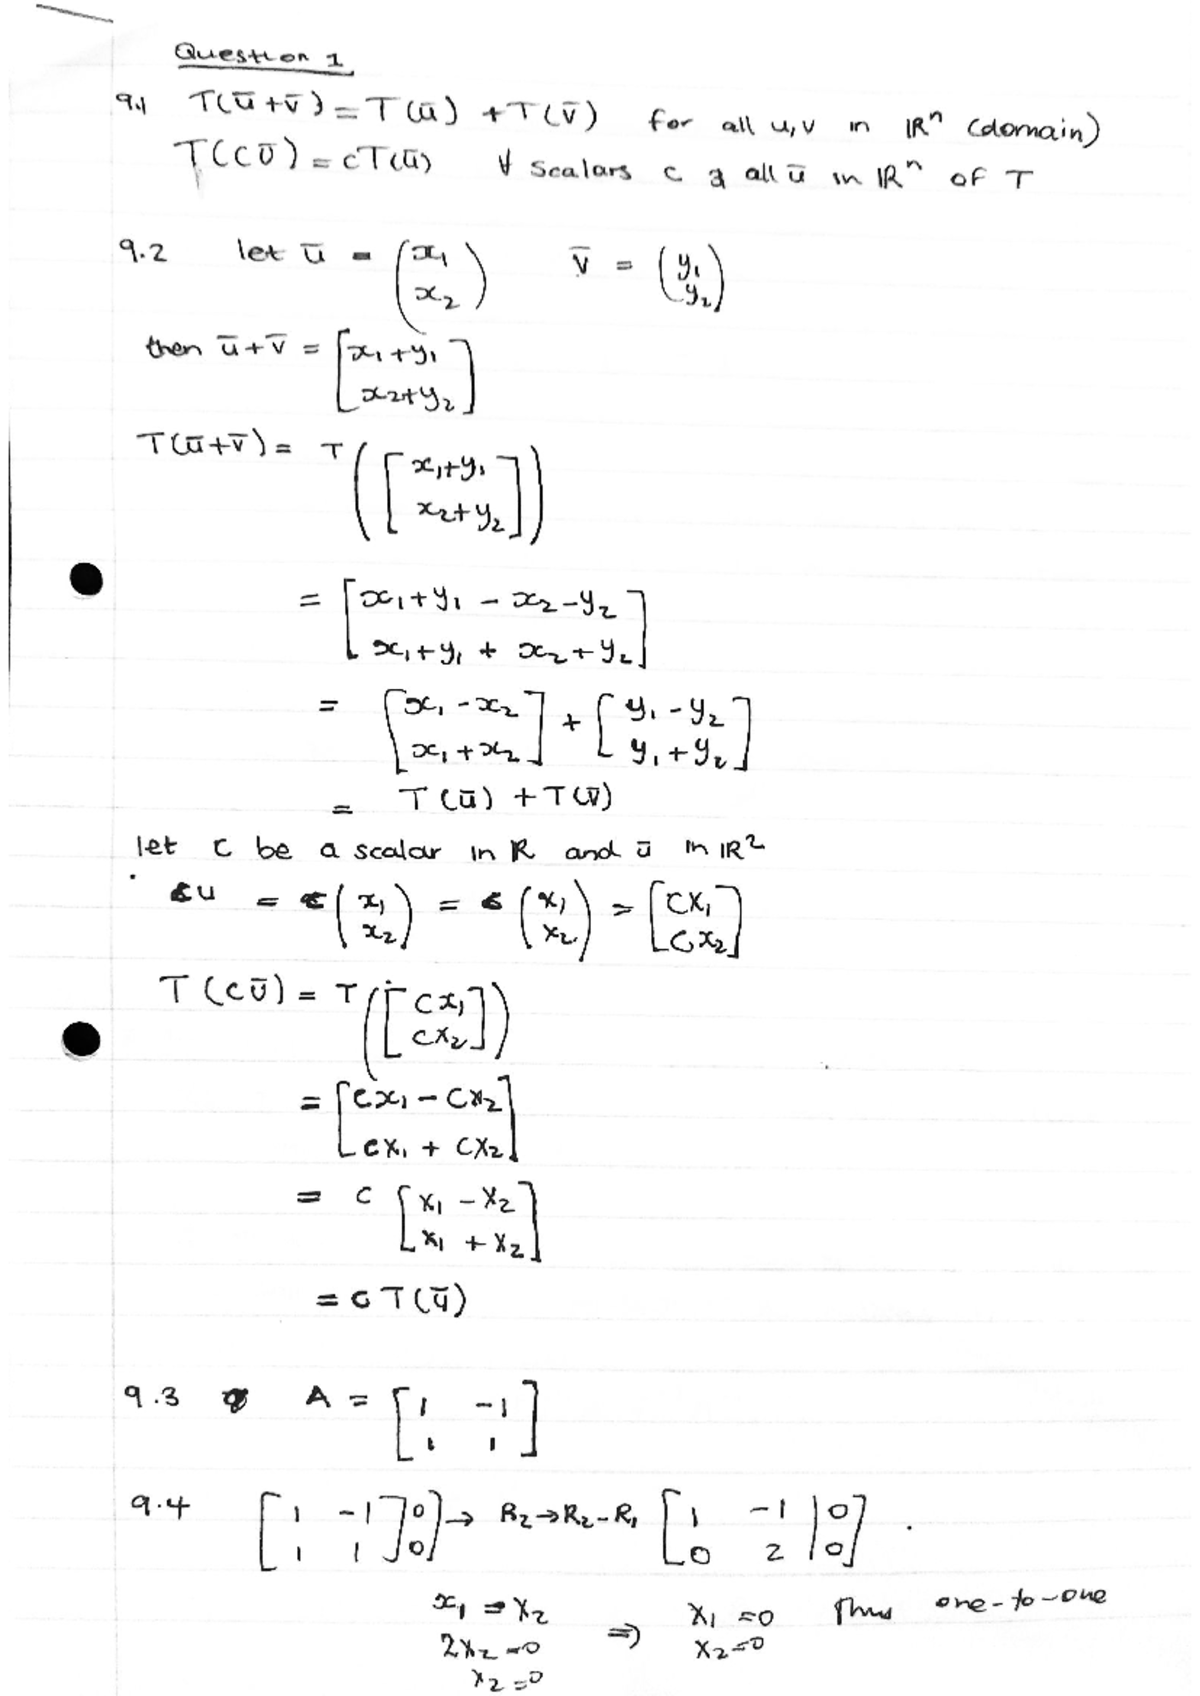 Question 1
9.1 T(ū+v̄) = T(ū) + T(v̄) for all u,v in ℝⁿ (domain)
T(cū) = cT(ū) ∀ scalars c & all ū in ℝⁿ of T
9.2 let ū = (x₁ x₂) v̄ = (y₁ y₂)
then ū+v̄ = [x₁+y₁ x₂+y₂]
T(ū+v̄) = T([x₁+y₁ x₂+y₂])
= [x₁+y₁ - x₂-y₂ x₁+y₁ + x₂+y₂]
= [x₁-x₂ x₁+x₂] + [y₁-y₂ y₁+y₂]
= T(ū) + T(v̄)
let c be a scalar in ℝ and ū in ℝ²
cu = c(x₁ x₂) = c(x₁ x₂) = [cx₁ cx₂]
T(cū) = T([cx₁ cx₂])
= [cx₁ - cx₂ cx₁ + cx₂]
= c [x₁ - x₂ x₁ + x₂]
= cT(ū)
9.3 A = [1 -1 1 1]
9.4 [1 -1 | 0 1 1 | 0] → R₂→R₂-R₁ [1 -1 | 0 0 2 | 0]
x₁ = x₂ ⇒ x₁ = 0 Thus one-to-one
2x₂ = 0 x₂ = 0
x₂ = 0